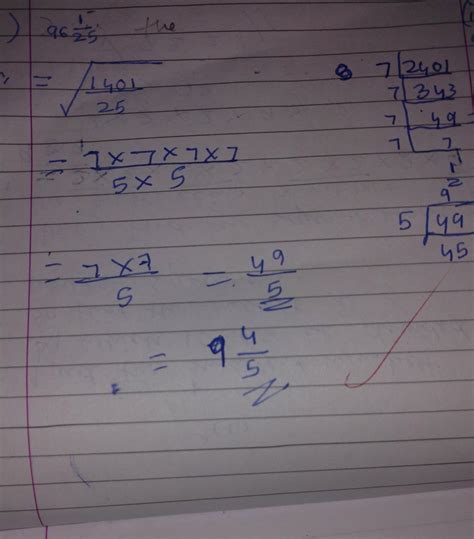 ) 96 1/25 the
= √1401/25
= 7×7×7×7/5×5
= 7×7/5 = 49/5
= 9 4/5
7 2401
7 343
7 49
7 7
1
9
5 49
45